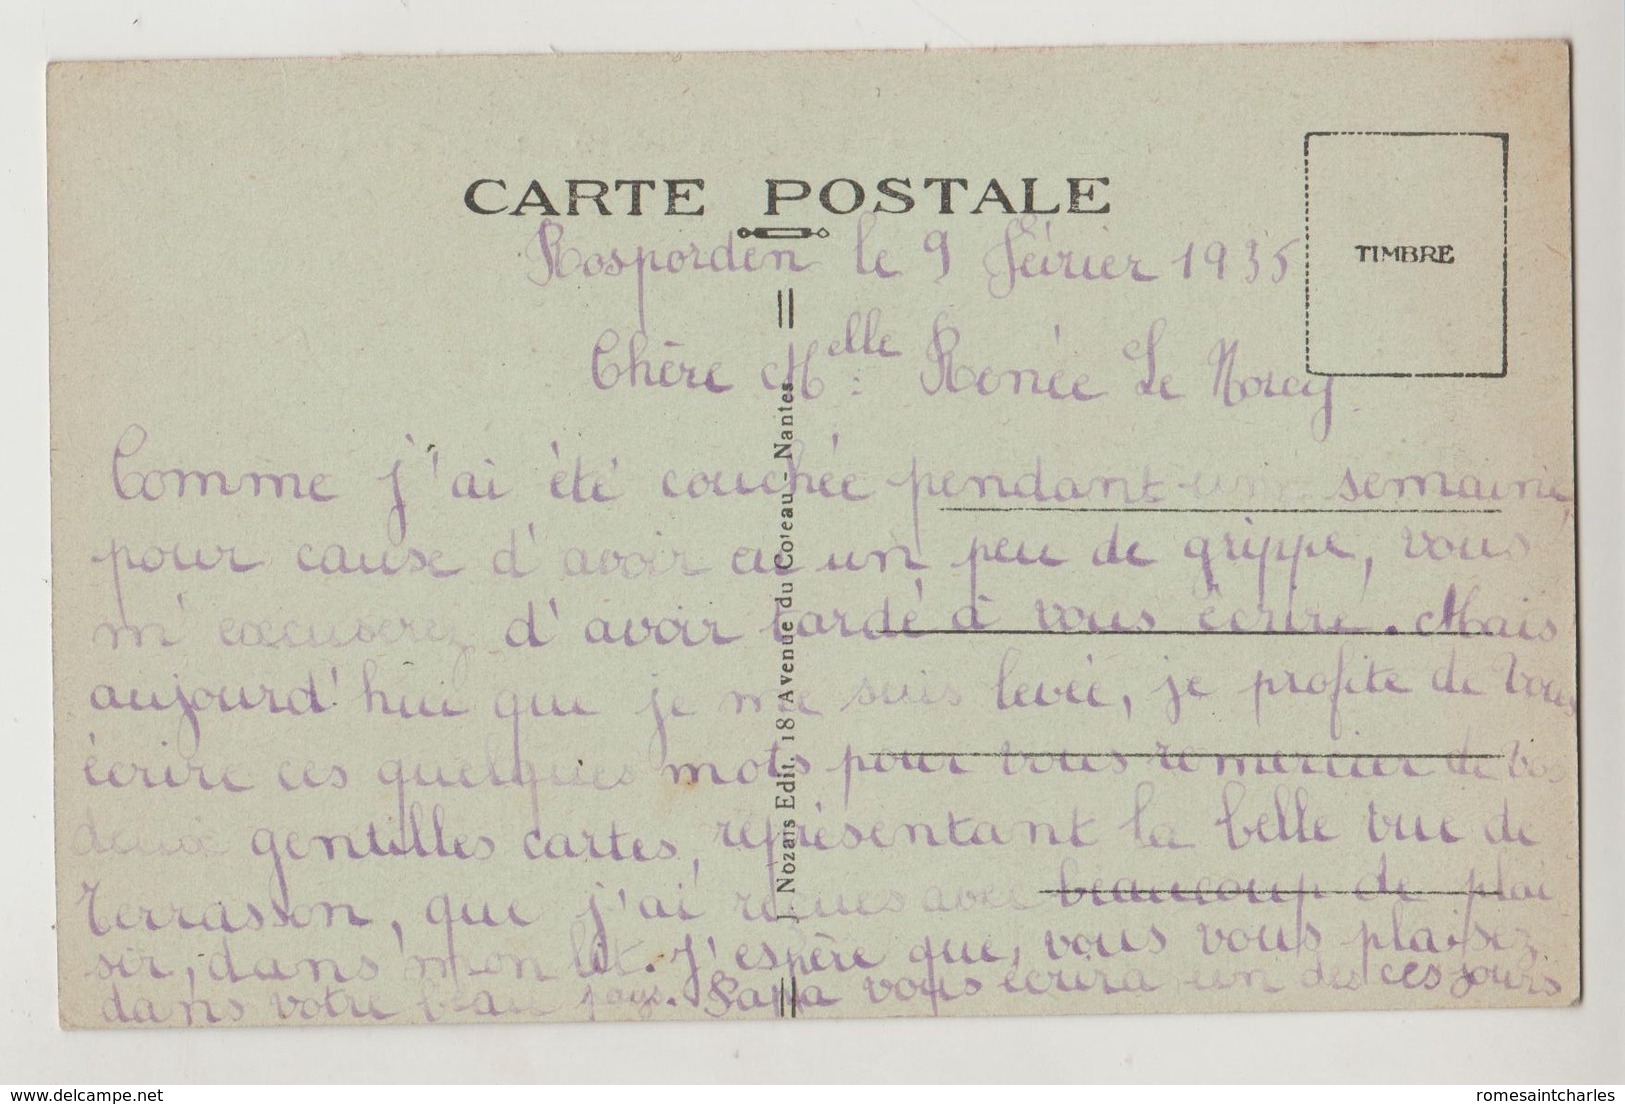 CARTE POSTALE
TIMBRE
Rosporden le 9 février 1935
Chère Melle: Renée Le Morcy
Comme j'ai été couchée pendant une semaine,
pour cause d'avoir eu un peu de grippe, vous
m'excuserez d'avoir tardé à vous écrire. Mais
aujourd'hui que je me suis levée, je profite de vous
écrire ces quelques mots pour vous remercier de vos
deux gentilles cartes, représentant la belle vue de
Terrasson, que j'ai reçues avec beaucoup de plai
sir, dans mon lit. J'espère que, vous vous plaisez
dans votre beau pays. Papa vous écrira un des ces jours
J. Nozais Edit. 18 Avenue du Coteau - Nantes
delcampe.net
romesaintcharles